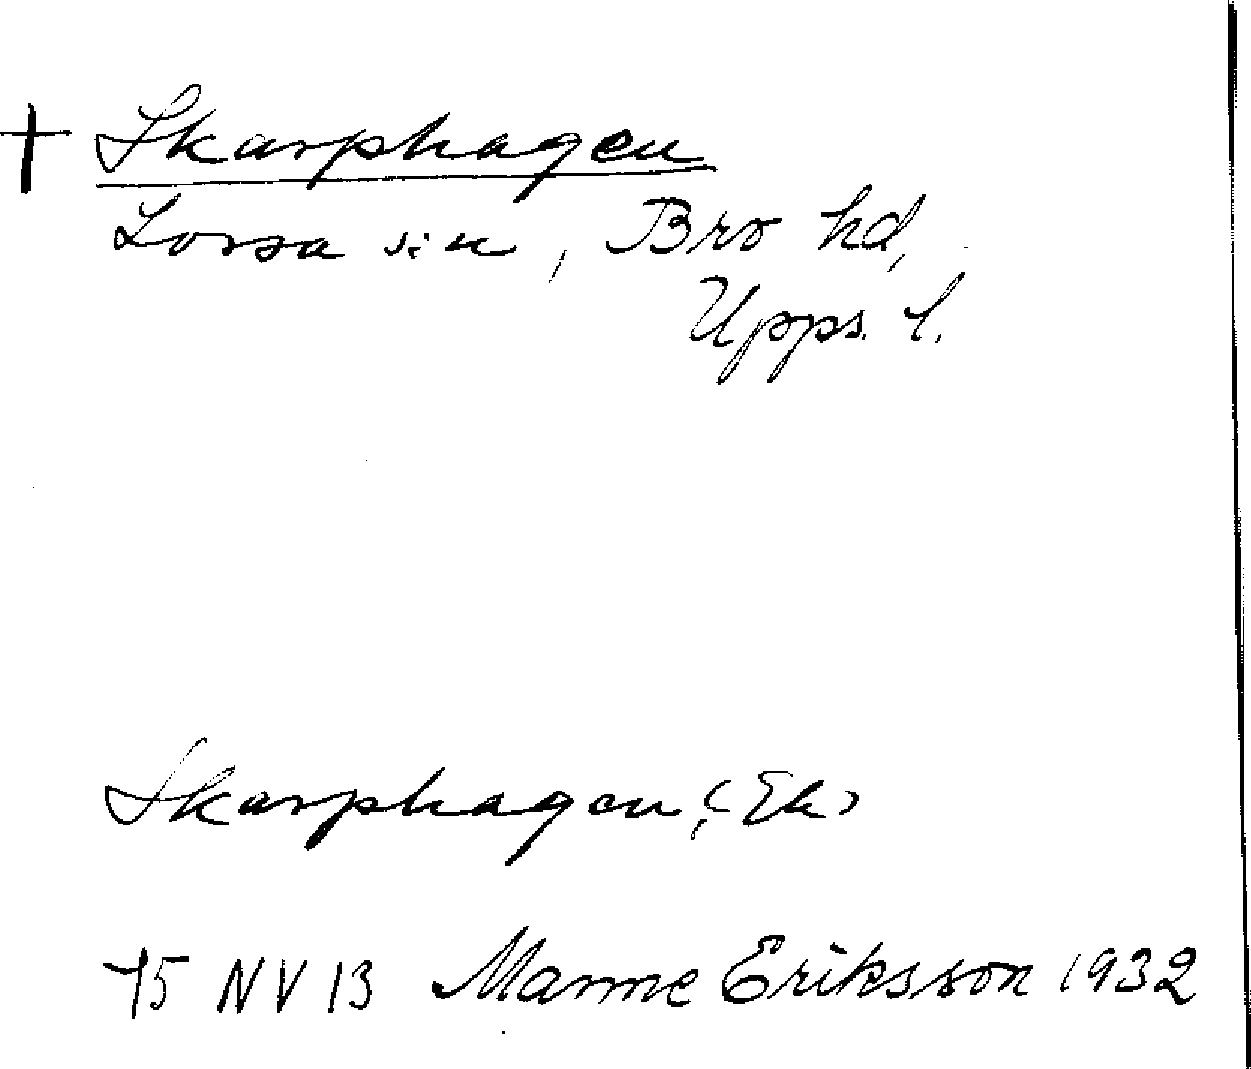 + Skarphagen
Lossa sn, Bro hd,
Upps. l.
Skarphagen, (Ek)
75 NV 13 Manne Eriksson 1932